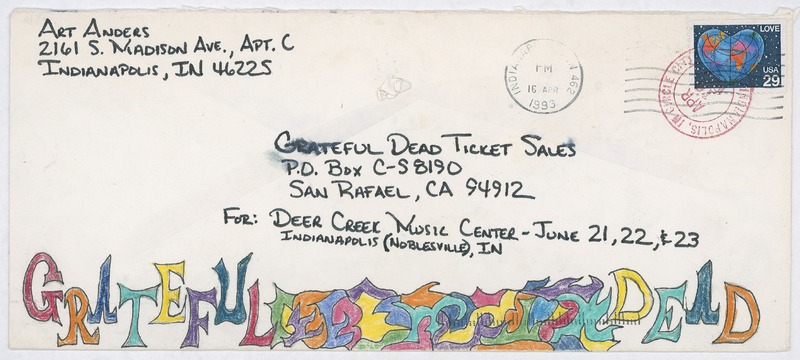 Art Anders
2161 S. Madison Ave., Apt. C
Indianapolis, IN 46225
PM
16 APR
1993
LOVE
USA
29
INDIANAPOLIS, IN
APR
Grateful Dead Ticket Sales
P.O. Box C-S8190
San Rafael, CA 94912
For: Deer Creek Music Center - June 21, 22, & 23
Indianapolis (Noblesville), IN
GRATEFUL DEAD